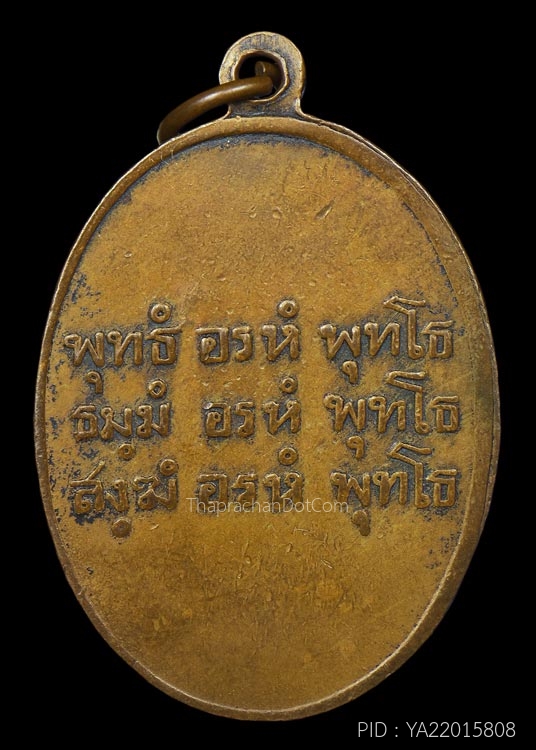 พุทธํ อรหํ พุทโธ
ธมฺมํ อรหํ พุทโธ
สงฺฆํ อรหํ พุทโธ
ThaprachanDotCom
PID : YA22015808